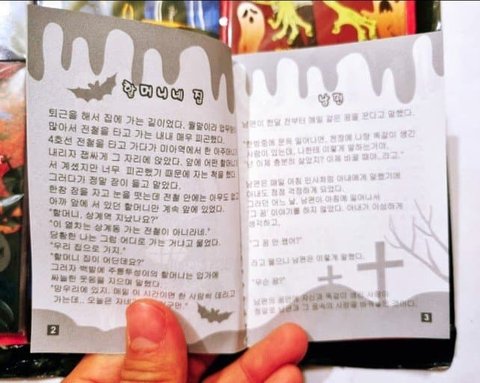 할머니네 집
퇴근을 해서 집에 가는 길이었다. 월말이라 업무량이
많아서 전철을 타고 가는 내내 매우 피곤했다.
4호선 전철을 타고 가다가 미아역에서 한 아주머니가
내리자 잽싸게 그 자리에 앉았다. 앞에 어떤 할머니가
서 계셨지만 너무 피곤했기 때문에 자는 척을 했다.
그러다가 정말 잠이 들고 말았다.
한참 잠을 자고 눈을 떴는데 전철 안에는 아무도 없고
아까 앞에 서 있던 할머니만 계속 앞에 있었다.
"할머니, 상계역 지났나요?"
"이 열차는 상계동 가는 전철이 아니라네."
당황한 나는 그럼 어디로 가는 거냐고 물었다.
"우리 집으로 가지."
"할머니 집이 어딘데요?"
그러자 백발에 주름투성이의 할머니는 입가에
싸늘한 웃음을 지으며 말했다.
"망우리에 있지. 매일 이 시간이면 한 사람씩 데리고
가는데.. 오늘은 자네
2
남편
남편이 한달 전부터 매일 같은 꿈을 꾼다고 말했다.
"한밤중에 문득 일어나면, 천장에 나랑 똑같이 생긴
사람이 있는데, 나한테 이렇게 말하는거야.
'난 이제 충분히 살았지? 이제 바꿀 때야..'라고."
남편은 매일 아침 인사처럼 아내에게 말했기에
아내도 점점 걱정하게 되었다.
그러던 어느 날, 남편이 아침에 일어나서
'그 꿈' 이야기를 하지 않았다. 아내가 이상하게
생각하고,
"그 꿈 안 꿨어?"
라고 물으니 남편은 이렇게 말했다.
"무슨 꿈?"
3